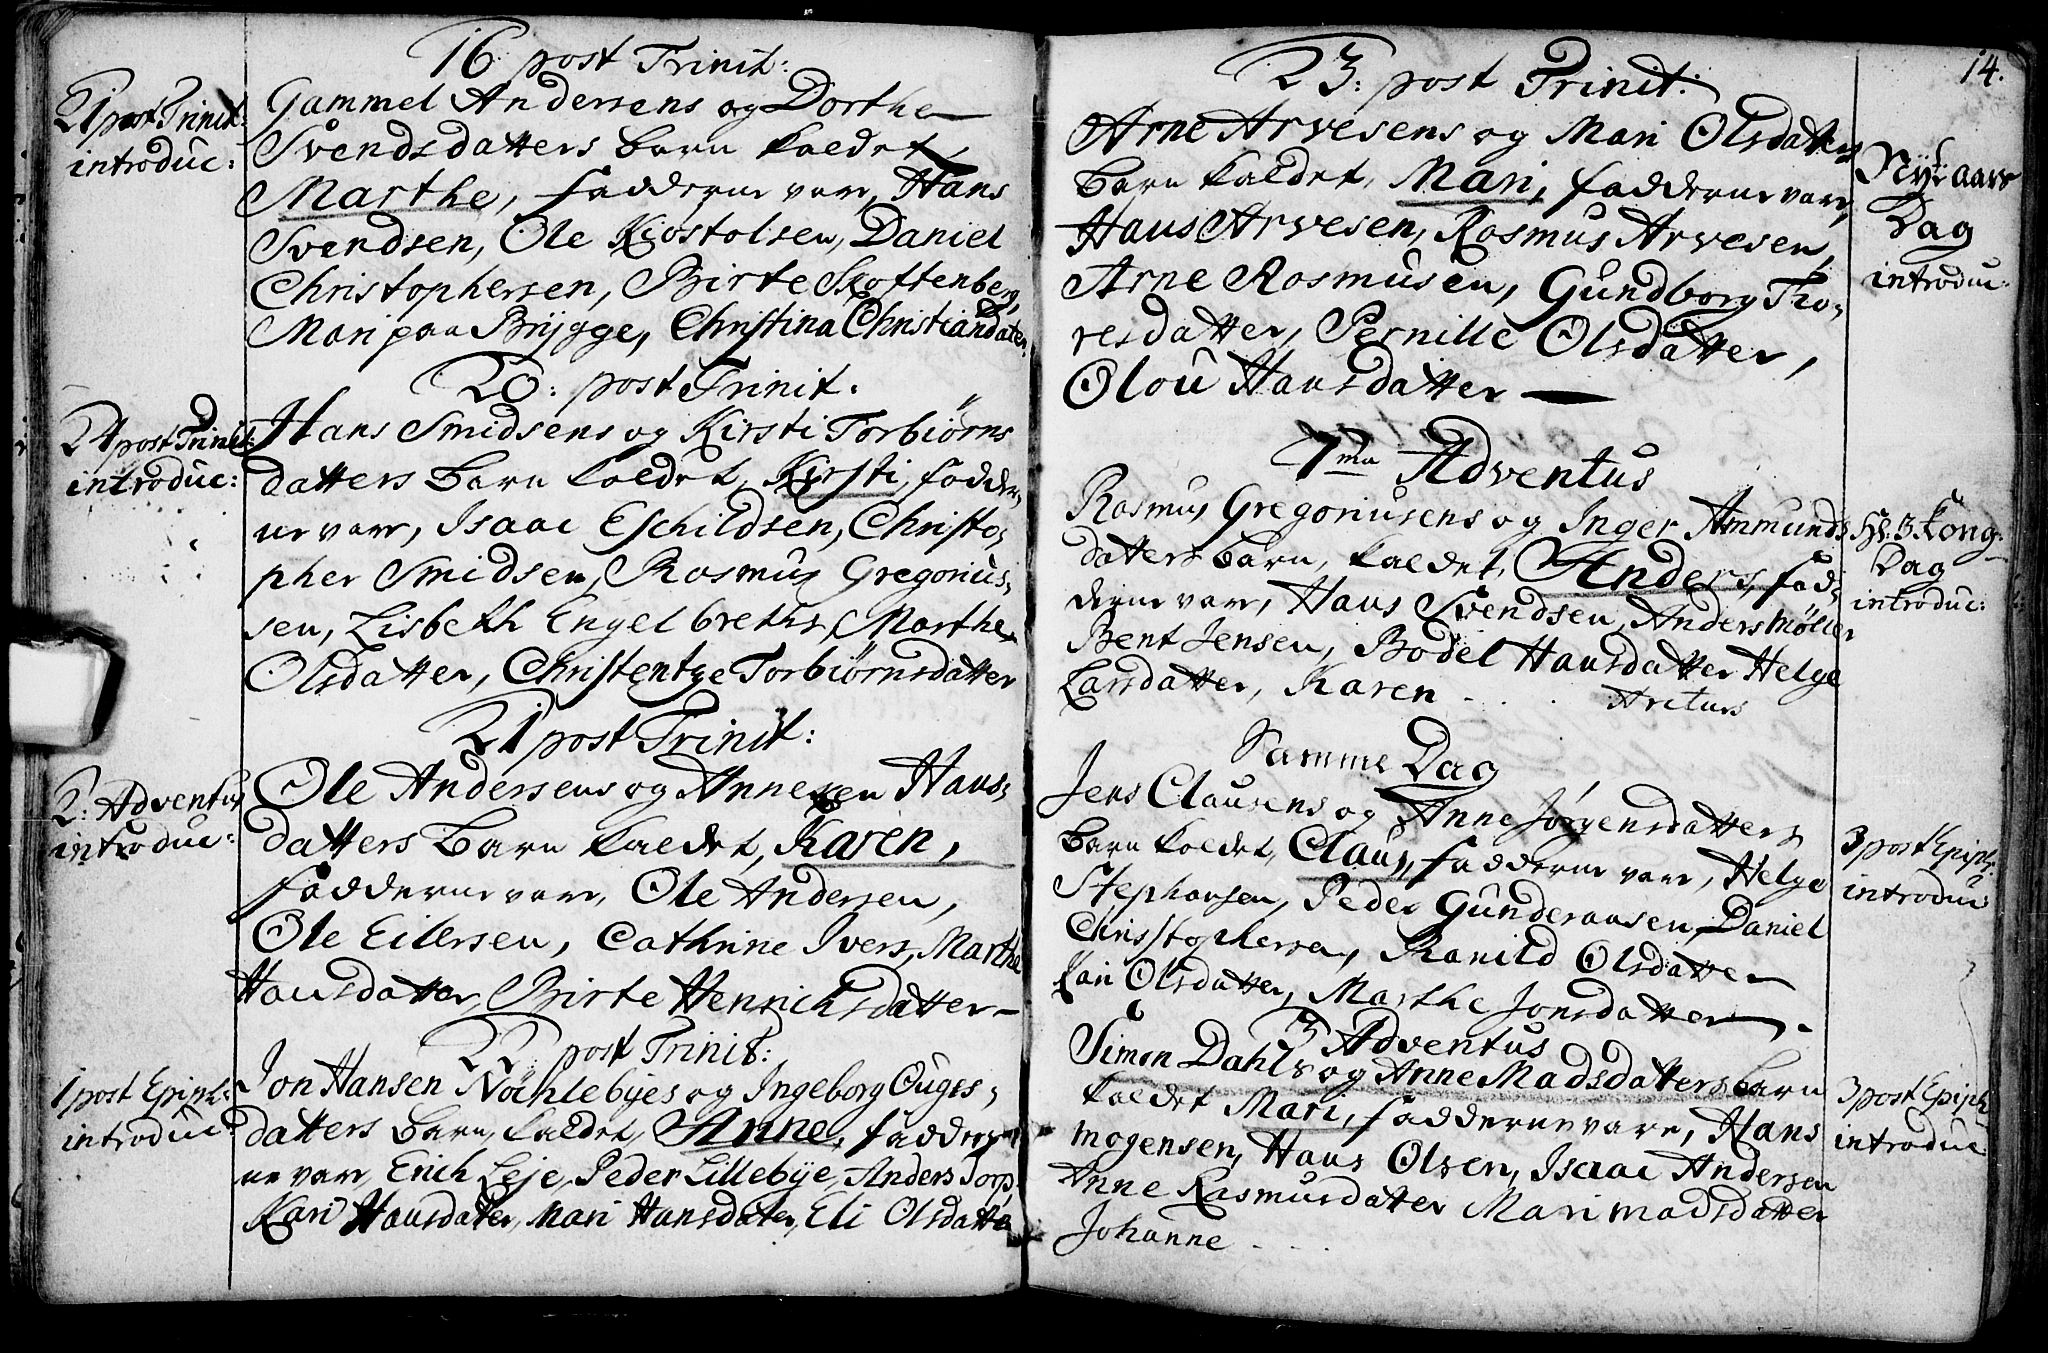 16 post Trinit:
21 post Trinit:
introduc:
Gammel Andersens og Dorthe
Svendsdatters barn kaldet,
Marthe, fadderne vare, Hans
Svendsen, Ole Kiostolsen, Daniel
Christophersen, Birte Skoftenberg,
Mari paa Brygge, Christina Christiandater.
20: post Trinit.
24 post Trinit:
introduc:
Hans Smidsens og Kirsti Torbiörns
datters barn kaldet, Kirsti, fadder,
ne vare, Isaac Eschildsen, Christo,
pher Smidsen, Rasmus Gregorius,
sen, Lisbeth Engelbreths, Marthe
Olsdatter, Christentze Torbiörnsdatter
21 post Trinit:
2: Adventus
introduc:
Ole Andersens og Anne Hans,
datters barn kaldet, Karen,
fadderne vare, Ole Andersen,
Ole Eilersen, Cathrine Ivers, Marthe
Hansdatter, Birte Henrichsdatter
22 post Trinit:
1 post Epiph:
introduc:
Jon Hansen Nochlebyes og Ingeborg Ouges,
datters barn, kaldet, Anne, fadder,
ne vare, Erich Leje, Peder Lillebye, Anders Torp,
Kari Hansdatter, Mari Hansdater, Eli Olsdatter
14.
23: post Trinit:
Arne Arvesens og Mari Olsdatters
barn kaldet, Mari, fadderne vare,
Hans Arvesen, Rasmus Arvesen,
Arne Rasmusen, Gundborg Tho,
resdatter, Pernille Olsdatter,
Olou Hansdatter
Nyt aars
Dag
introduc:
1ma Adventus
Rasmus Gregoriusens og Inger Ammunds
datters barn, kaldet, Anders, fad,
derne vare, Hans Svendsen, Anders Möller
Bent Jensen, Bodel Hansdatter Helge
Larsdatter, Karen . . . Aretors
Hs: 3 Kong:
Dag
introduc:
Samme Dag
Jens Clausens og Anne Jörgensdatters
barn kaldet, Claus, fadderne vare, Helge
Stephansen, Peder Gunderausen, Daniel
Christophersen, Ranild Olsdatter
Kari Olsdatter, Marthe Jonsdatter
3 post Epiph:
introduc
3 Adventus
Simon Dahls og Anne Madsdatters barn
kaldet Mari, fadderne vare, Hans
Mogensen, Hans Olsen, Isaac Andersen
Anne Rasmusdatter Mari Madsdatter
Johanne . . .
3 post Epiph
introduc